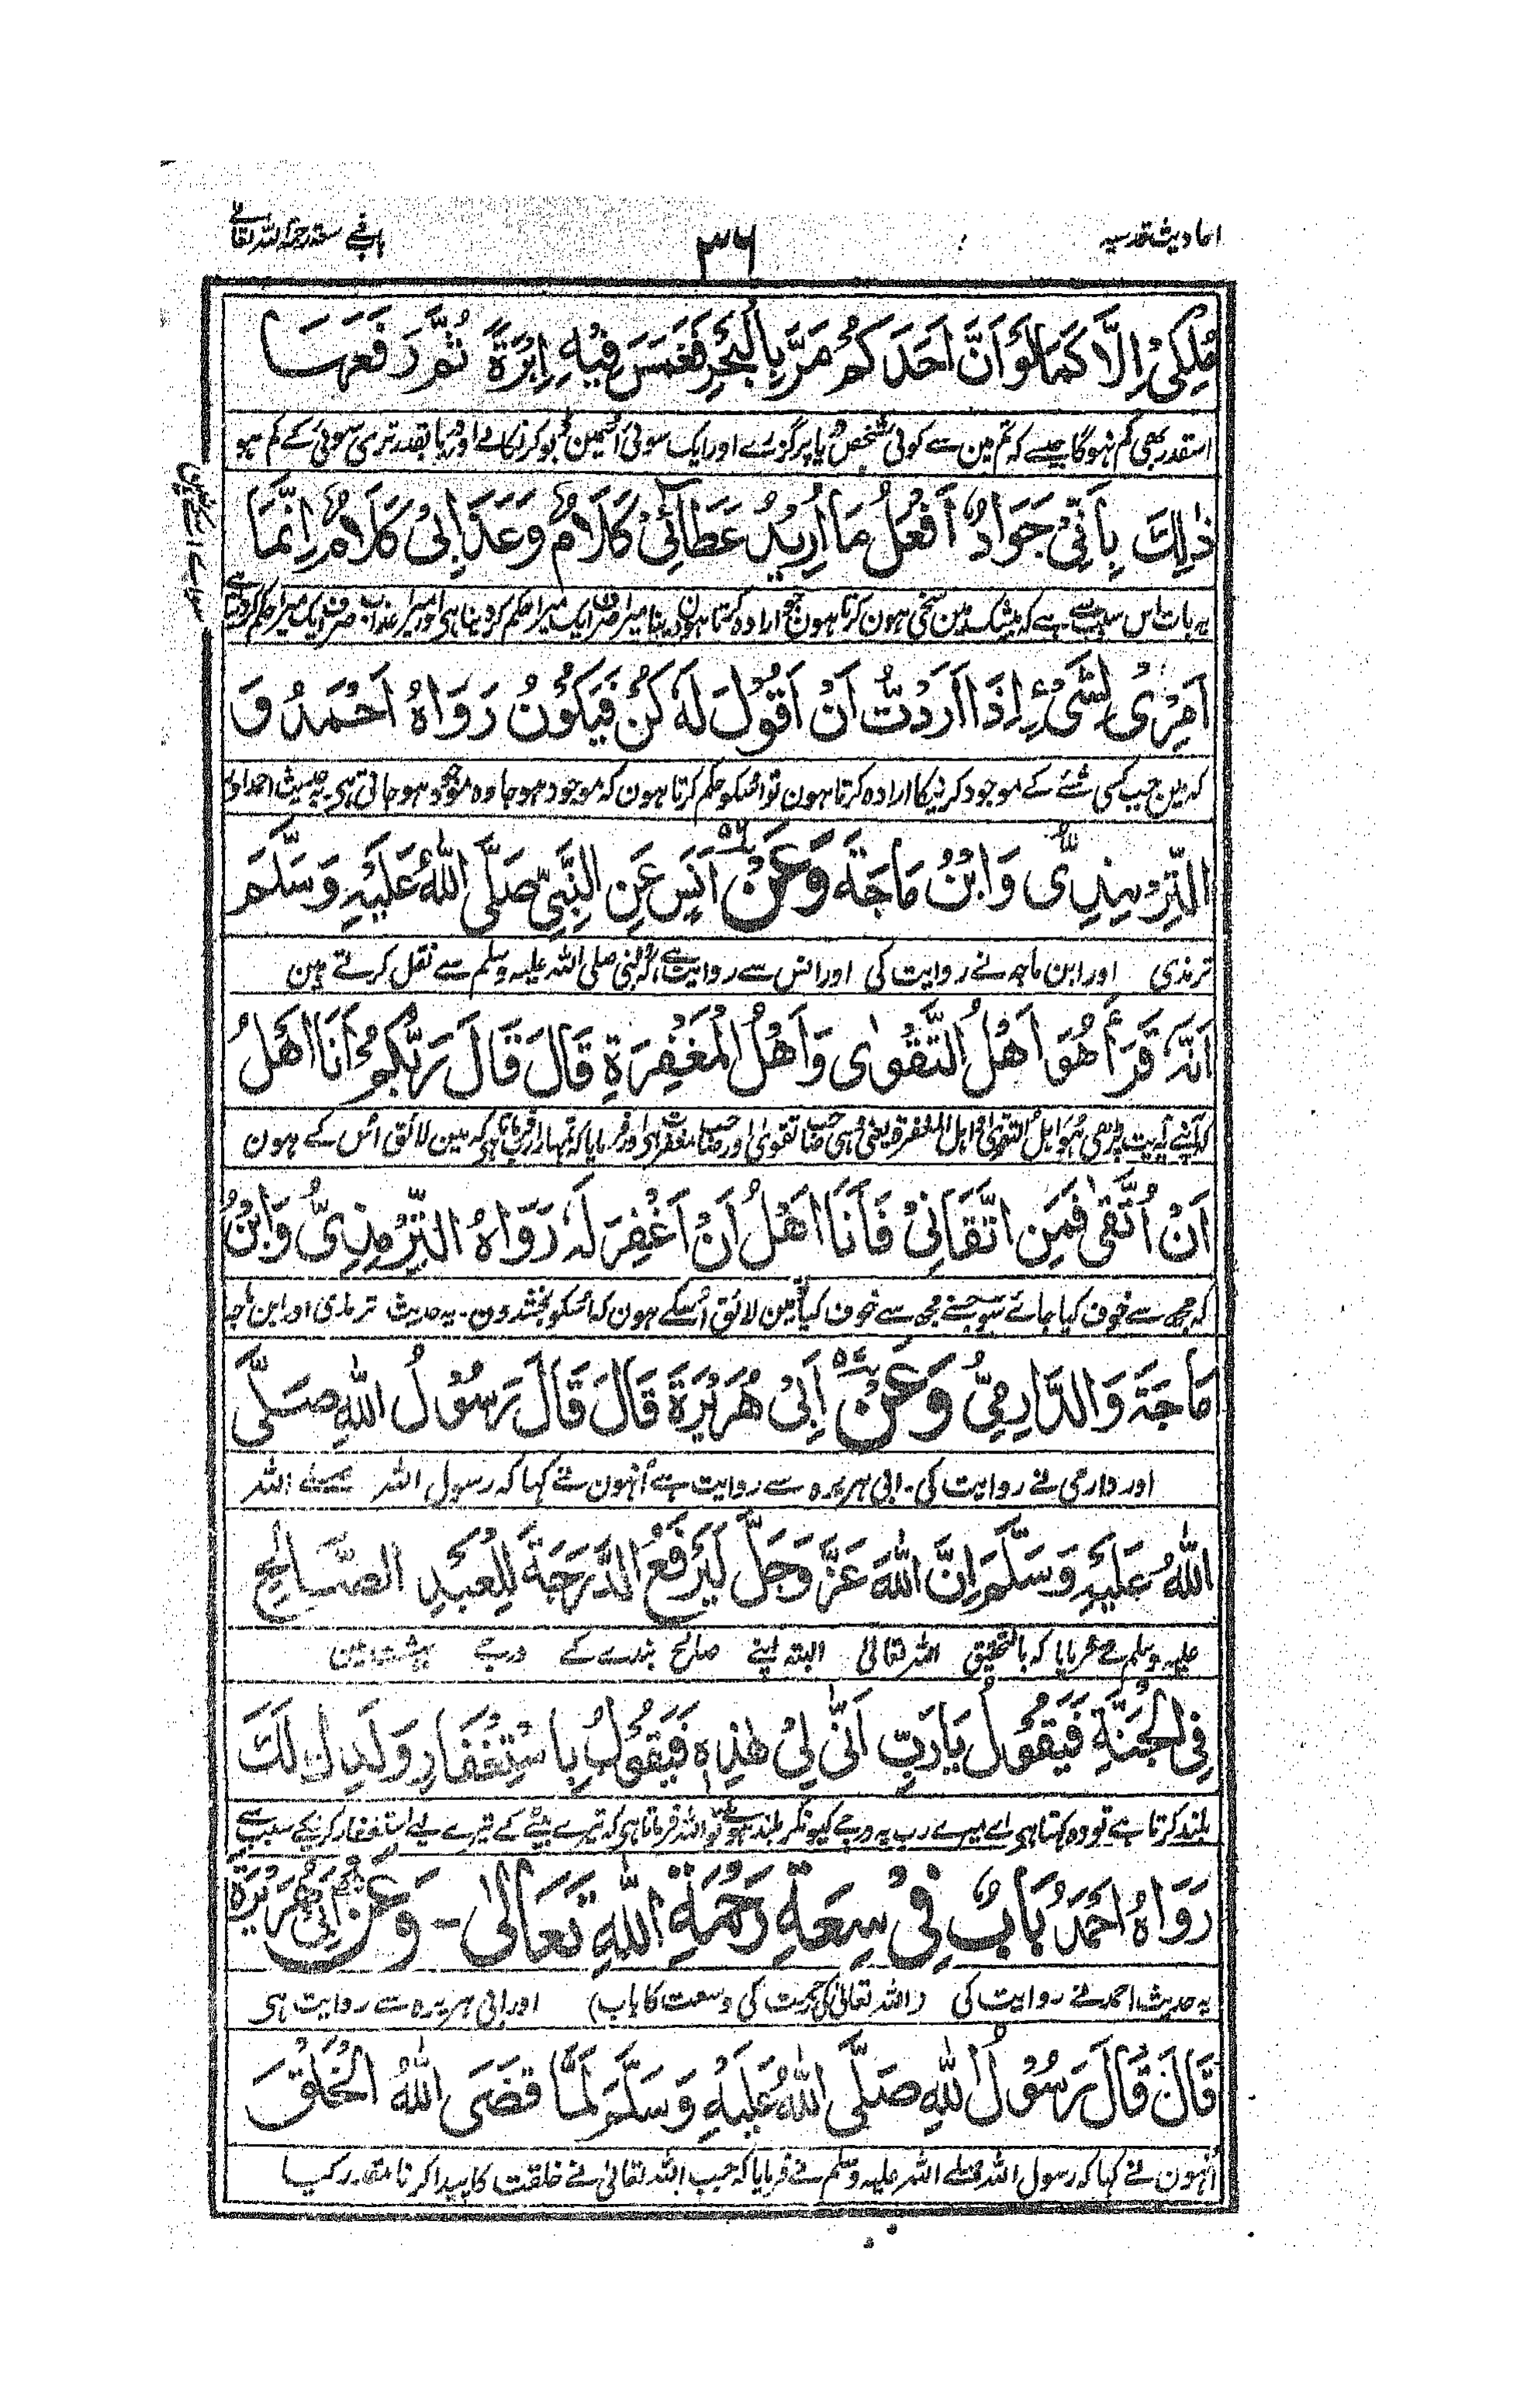 احادیث قدسیہ
۳۶
باب فی سعۃ رحمۃ اللہ تعالے
مُلْكِىْ اِلَّا كَمَا لَوْ اَنَّ اَحَدَكُمْ مَرَّ بِالْبَحْرِ فَغَمَسَ فِيْهِ اِبْرَةً ثُمَّ رَفَعَهَا
اسقدر بھی کم نہوگا جیسے کہ تم مین سے کوئی شخص دریا پر گزرے اور ایک سوئی اسمین ڈبو کر نکالے اور دریا بقدر تری سوئی کے کم ہو
ذٰلِكَ بِاَنِّىْ جَوَادٌ اَفْعَلُ مَا اُرِيْدُ عَطَائِىْ كَلَامٌ وَعَذَابِىْ كَلَامٌ اِنَّمَا
یہ بات اس سبب سے ہے کہ بیشک مین سخی ہون کرتا ہون جو ارادہ کرتا ہون دینا میرا صرف ایک میرا حکم کر دینا ہی اور میرا عذاب صرف ایک میرا حکم کر دینا ہے
اَمْرِىْ لِشَىْءٍ اِذَا اَرَدْتُّ اَنْ اَقُوْلَ لَهٗ كُنْ فَيَكُوْنُ رَوَاهُ اَحْمَدُ وَ
کہ مین جب کسی شئے کے موجود کرنیکا ارادہ کرتا ہون تو اسکو حکم کرتا ہون کہ موجود ہو جا وہ موجود ہو جاتی ہی۔ یہ حدیث احمد اور
التِّرْمِذِىُّ وَابْنُ مَاجَةَ وَعَنْ اَنَسٍ عَنِ النَّبِىِّ صَلَّى اللّٰهُ عَلَيْهِ وَسَلَّمَ
ترمذی اور ابن ماجہ نے روایت کی اور انس سے روایت ہے کہ نبی صلی اللہ علیہ وسلم سے نقل کرتے ہین
اَنَّهٗ قَرَأَ هُوَ اَهْلُ التَّقْوٰى وَاَهْلُ الْمَغْفِرَةِ قَالَ قَالَ رَبُّكُمْ اَنَا اَهْلُ
کہ آپنے یہ آیت پڑھی ہُوَ اہل التقوی و اہل المغفرۃ یعنی وہی صاحب تقویٰ اور صاحب مغفرت ہی اور فرمایا کہ تمہارا رب فرماتا ہی کہ مین لائق اس کے ہون
اَنْ اُتَّقٰى فَمَنِ اتَّقَانِىْ فَاَنَا اَهْلُ اَنْ اَغْفِرَ لَهٗ رَوَاهُ التِّرْمِذِىُّ وَابْنُ
کہ مجھ سے خوف کیا جائے سو جسنے مجھ سے خوف کیا تو مین لائق اسکے ہون کہ اسکو بخشدون۔ یہ حدیث ترمذی اور ابن ماجہ
مَاجَةَ وَالدَّارِمِىُّ وَعَنْ اَبِىْ هُرَيْرَةَ قَالَ قَالَ رَسُوْلُ اللّٰهِ صَلَّى
اور دارمی نے روایت کی۔ ابی ہریرہ سے روایت ہے اُنہون نے کہا کہ رسول اللہ صلے اللہ
اللّٰهُ عَلَيْهِ وَسَلَّمَ اِنَّ اللّٰهَ عَزَّ وَجَلَّ لَيَرْفَعُ الدَّرَجَةَ لِلْعَبْدِ الصَّالِحِ
علیہ وسلم نے فرمایا کہ بالتحقیق اللہ تعالیٰ البتہ اپنے صالح بندے کے درجے بہشت مین
فِى الْجَنَّةِ فَيَقُوْلُ يَا رَبِّ اَنّٰى لِىْ هٰذِهٖ فَيَقُوْلُ بِاسْتِغْفَارِ وَلَدِكَ لَكَ
بلند کرتا ہے تو وہ کہتا ہی اے میرے رب یہ درجے کیونکر بلند ہوئے تو اللہ فرماتا ہی کہ تیرے بیٹے کے تیرے لیے استغفار کرنیکے سبب سے
رَوَاهُ اَحْمَدُ بَابٌ فِىْ سِعَةِ رَحْمَةِ اللّٰهِ تَعَالٰى - وَعَنْ اَبِىْ هُرَيْرَةَ
یہ حدیث احمد نے روایت کی (اللہ تعالیٰ کی رحمت کی وسعت کا باب) اور ابی ہریرہ سے روایت ہی
قَالَ قَالَ رَسُوْلُ اللّٰهِ صَلَّى اللّٰهُ عَلَيْهِ وَسَلَّمَ لَمَّا قَضَى اللّٰهُ الْخَلْقَ
اُنہون نے کہا کہ رسول اللہ صلے اللہ علیہ وسلم نے فرمایا کہ جب اللہ تعالیٰ نے خلقت کا پیدا کرنا مقدر کیا